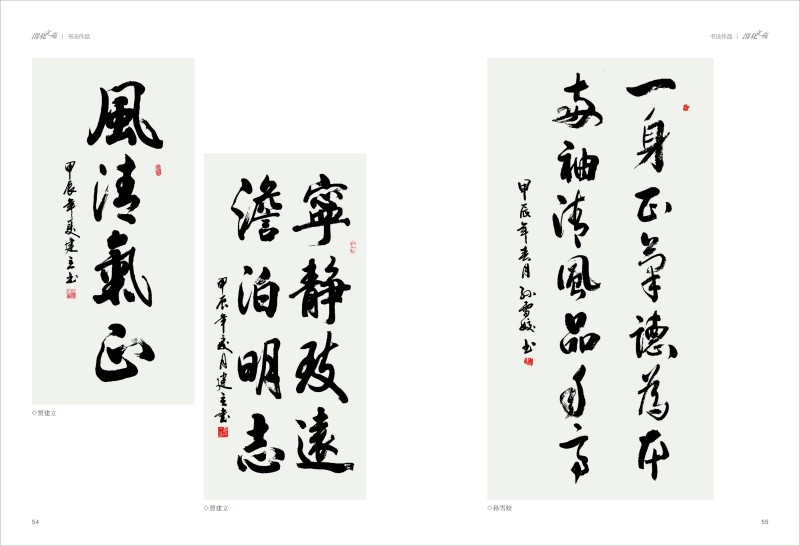 书法作品
風清氣正
甲辰年夏建立书
◇贾建立
寧靜致遠
澹泊明志
甲辰年夏月建立书
◇贾建立
54
书法作品
一身正氣德為本
两袖清風品自高
甲辰年春月孙雪姣书
◇孙雪姣
55